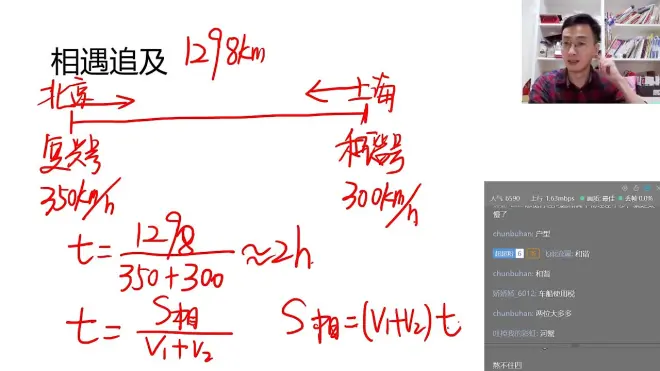 相遇追及 1298km
北京 上海
复兴号 和谐号
350km/h 300km/h
t=1298/350+300≈2h
t=S相/V₁+V₂ S相=(V₁+V₂)t
人气 6590 上行 1.63mbps 画质:最佳 丢帧 0.0%
懂了
chunbuhan: 户型
和谐
chunbuhan: 和谐
6012: 车船使用税
chunbuhan: 两位太多多
问题
熬不住四